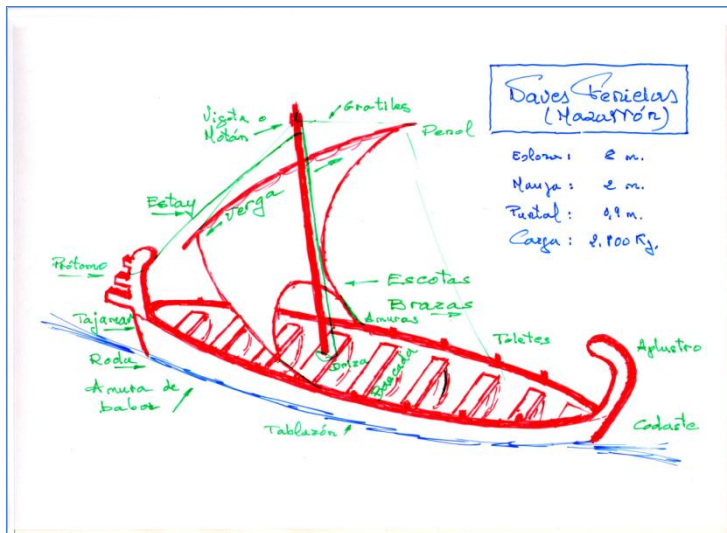 Naves Fenicias
(Mazarrón)
Eslora: 8 m.
Manga: 2 m.
Puntal: 0,9 m.
Carga: 2.800 Kg.
Vigota o
Motón
Gratiles
Penol
Estay
Verga
Prótomo
Escotas
Brazas
Amuras
Tajamar
Toletes
Aplustro
Roda
Driza
Bancada
Amura de
babor
Tablazón
Codaste